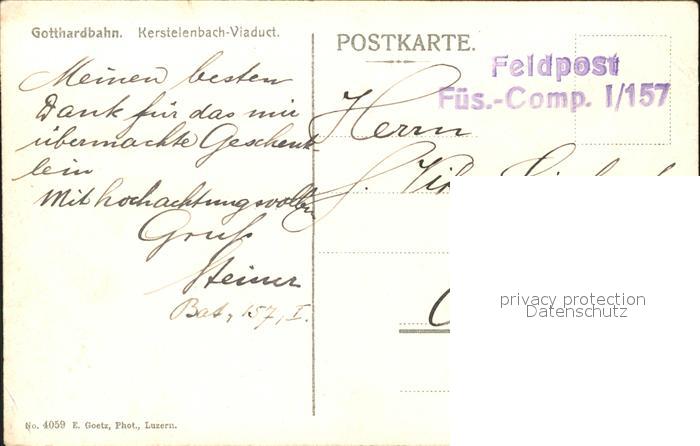 Gotthardbahn. Kerstelenbach-Viaduct.
POSTKARTE.
Feldpost
Füs.-Comp. I/157
Meinen besten
Dank für das mir
übermachte Geschenk-
lein
Mit hochachtungsvollem
Gruß
Steiner
Bat, 157, I.
Herrn
privacy protection
Datenschutz
No. 4059 E. Goetz, Phot., Luzern.